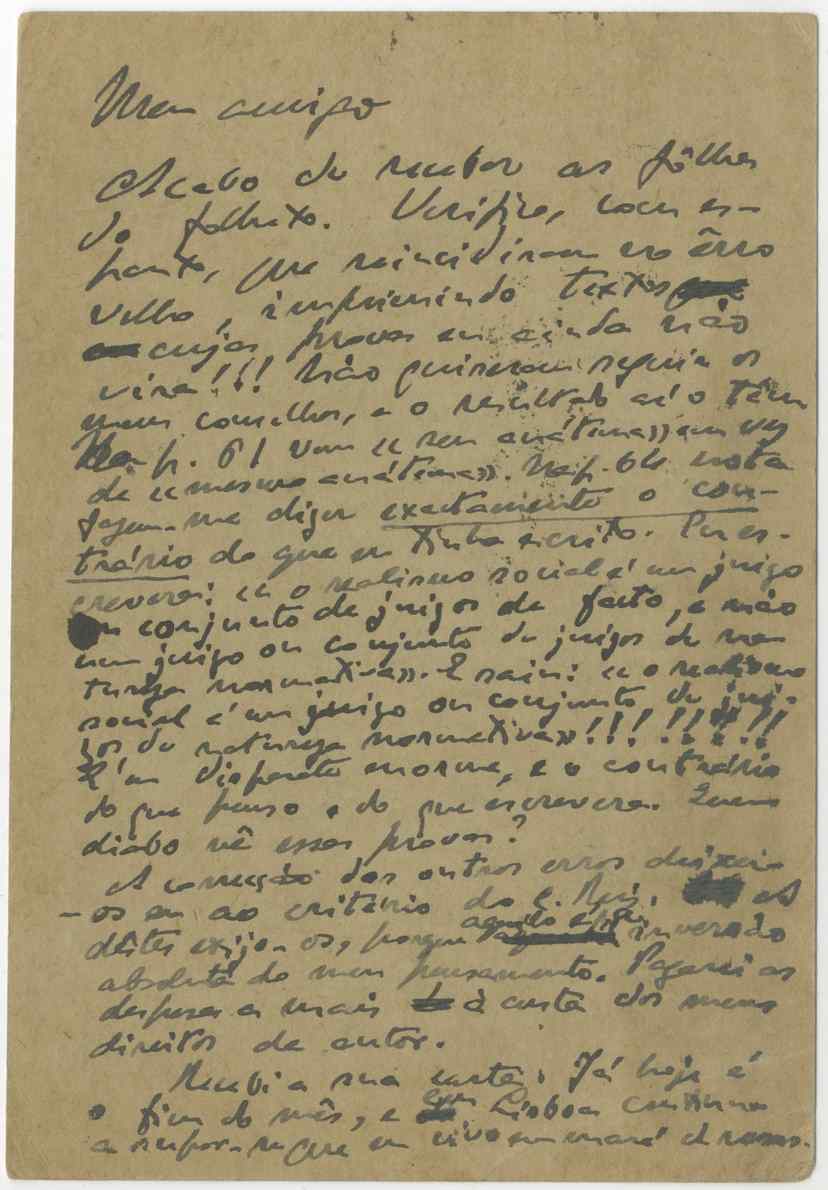 Meu amigo
Acabo de receber as fôlhas
do folheto. Verifico, com es-
panto, que reincidiram no êrro
velho, imprimindo textos
cujas provas eu ainda não
vira!!! Não quiseram seguir os
meus conselhos, e o resultado aí o têm
Na p. 61 vem «sem anátema» em vez
de «mesmo anátema». Na p. 64 nota
fazem-me dizer exactamente o con-
trário do que eu tinha escrito. Eu es-
crevera: «o realismo social é um juízo
ou conjunto de juízos de facto, e não
um juízo ou conjunto de juízos de na-
tureza normativa». E saiu: «o realismo
social é um juízo ou conjunto de juí-
zos de natureza normativa»!!! !!!!!
É um disparate enorme, e o contrário
do que penso e do que escrevera. Quem
diabo vê essas provas?
A correcção dos outros erros deixei-
-os eu ao critério do C. Reis. A
dêstes exijo-os, porque aquilo é inversão
absoluta do meu pensamento. Pagarei as
despesas a mais à custa dos meus
direitos de autor.
Recebi a sua carta. Já hoje é
o fim do mês, e em Lisboa continua
a supor-se que eu vivo em